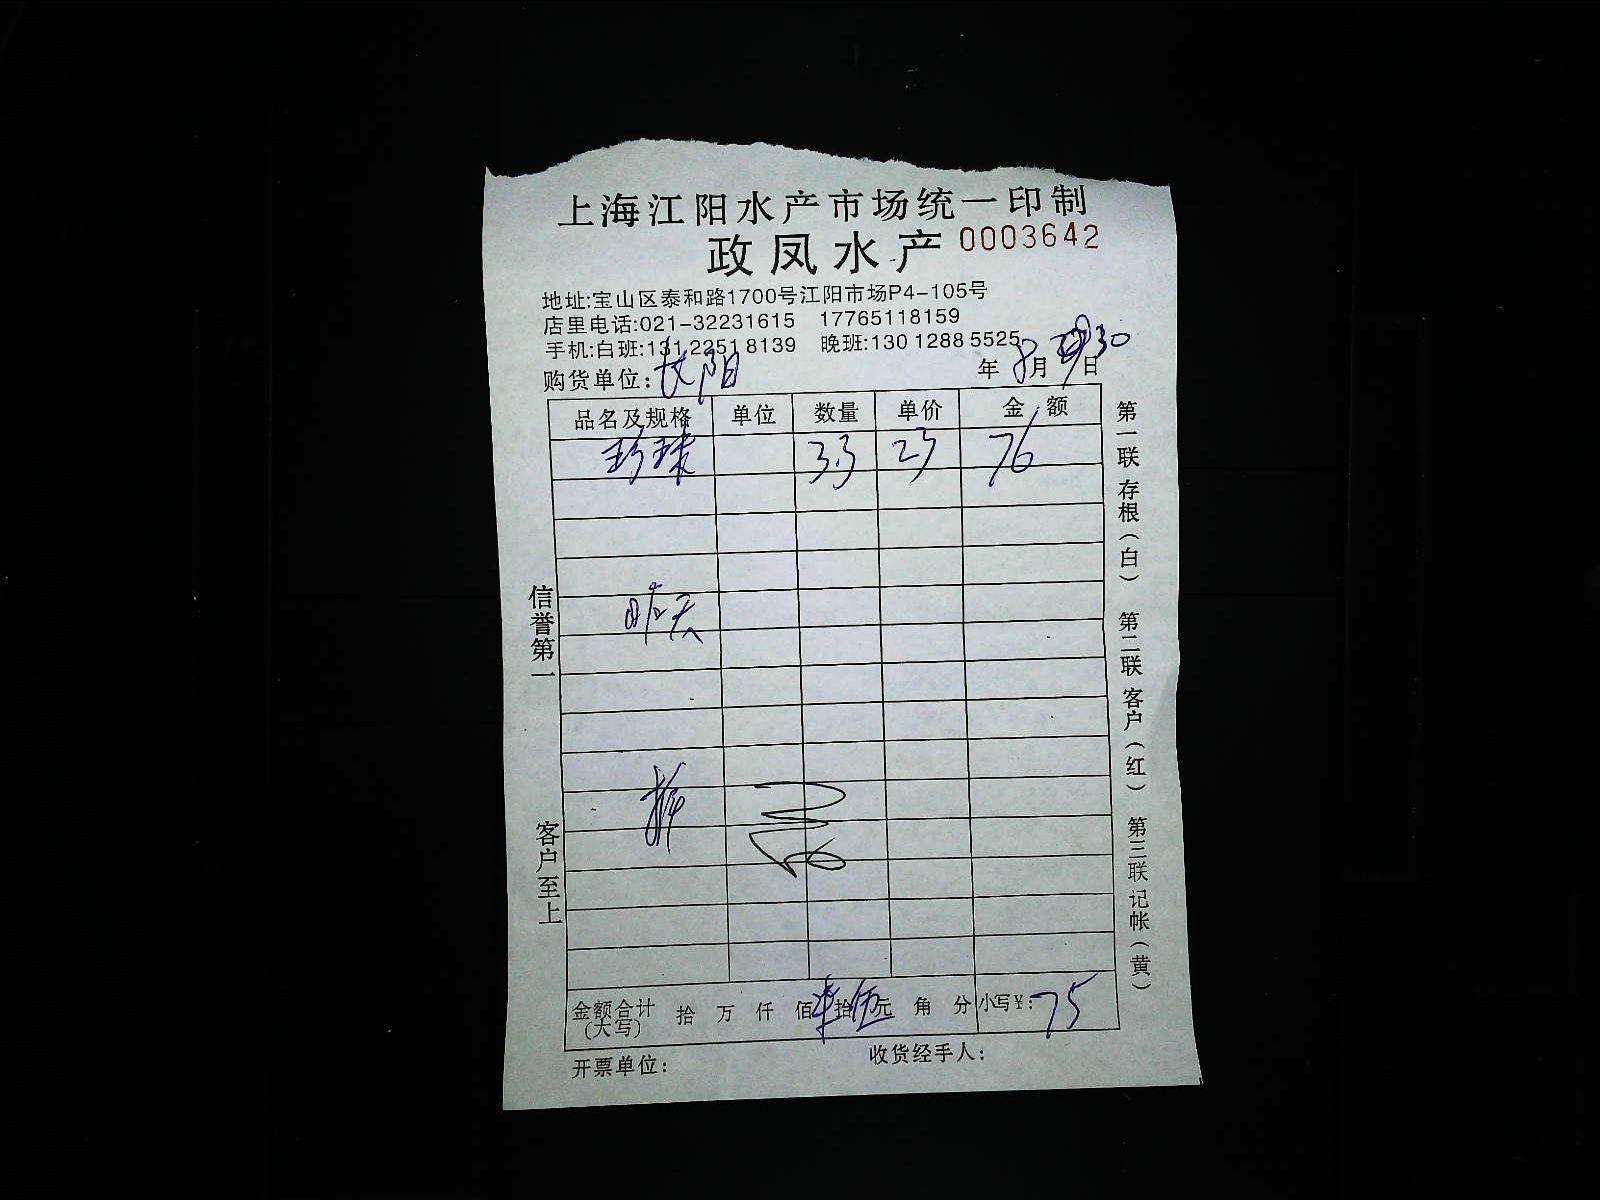 上海江阳水产市场统一印制
政凤水产 0003642
地址:宝山区泰和路1700号江阳市场P4-105号
店里电话:021-32231615 17765118159
手机:白班:131 2251 8139 晚班:130 1288 5525
购货单位:长阳 年 8月 日 30
品名及规格 单位 数量 单价 金额
珍珠 3.3 23 76
昨天
金额合计(大写) 拾 万 仟 佰 柒拾 伍元 角 分 小写¥:75
开票单位: 收货经手人:
信誉第一 客户至上
第一联 存根(白) 第二联 客户(红) 第三联 记帐(黄)